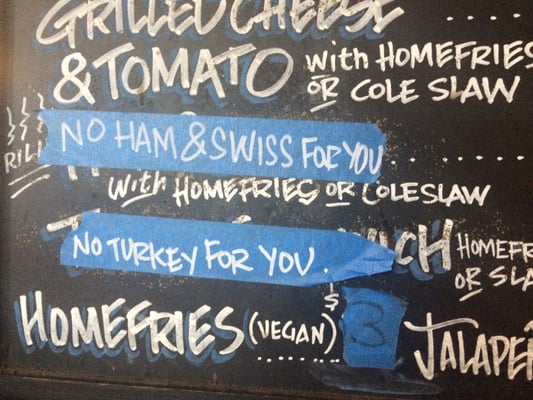 GRILLED CHEESE
& TOMATO with HOMEFRIES
OR COLE SLAW
NO HAM & SWISS FOR YOU
with HOMEFRIES OR COLESLAW
NO TURKEY FOR YOU.
HOMEFR
OR SLA
HOMEFRIES (VEGAN) $3
JALAPEÑ